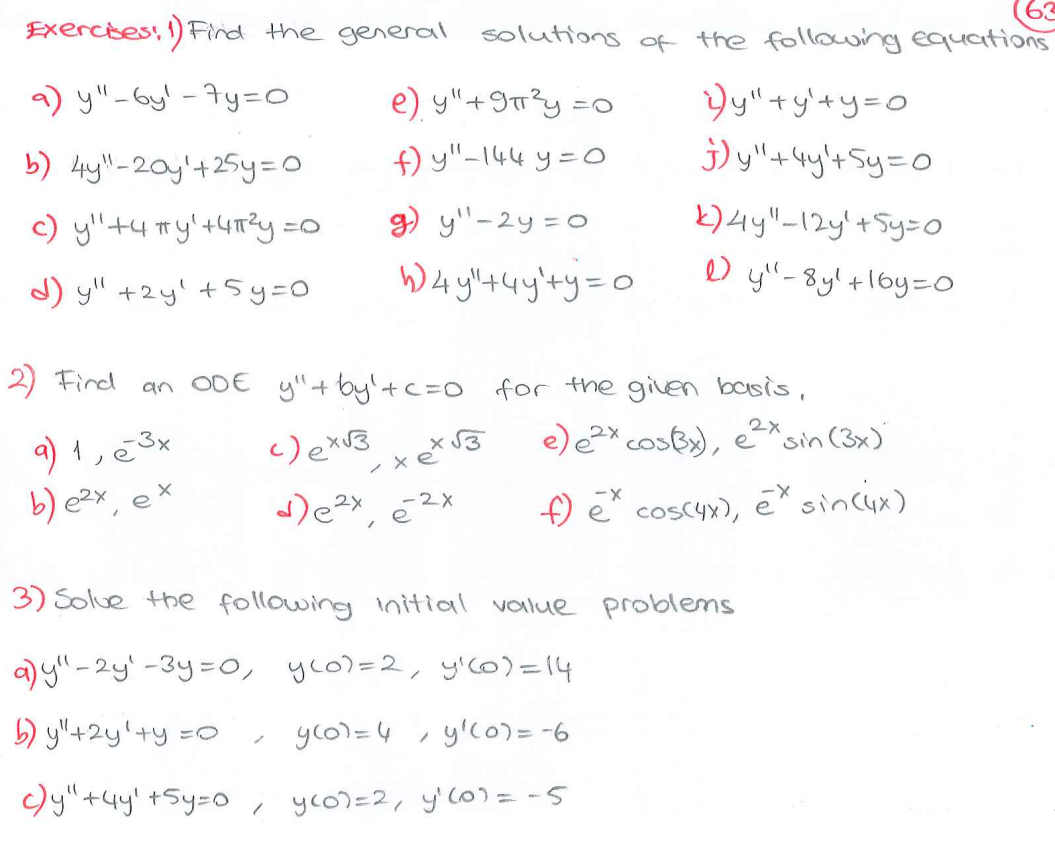 63
Exercises: 1) Find the general solutions of the following equations
a) y''-6y'-7y=0 e) y''+9π²y=0 i) y''+y'+y=0
b) 4y''-20y'+25y=0 f) y''-144y=0 j) y''+4y'+5y=0
c) y''+4πy'+4π²y=0 g) y''-2y=0 k) 4y''-12y'+5y=0
d) y''+2y'+5y=0 h) 4y''+4y'+y=0 l) y''-8y'+16y=0
2) Find an ODE y''+by'+c=0 for the given basis.
a) 1, e^-3x c) e^x√3, xe^x√3 e) e^2x cos(3x), e^2x sin(3x)
b) e^2x, e^x d) e^2x, e^-2x f) e^-x cos(4x), e^-x sin(4x)
3) Solve the following initial value problems
a) y''-2y'-3y=0, y(0)=2, y'(0)=14
b) y''+2y'+y=0, y(0)=4, y'(0)=-6
c) y''+4y'+5y=0, y(0)=2, y'(0)=-5